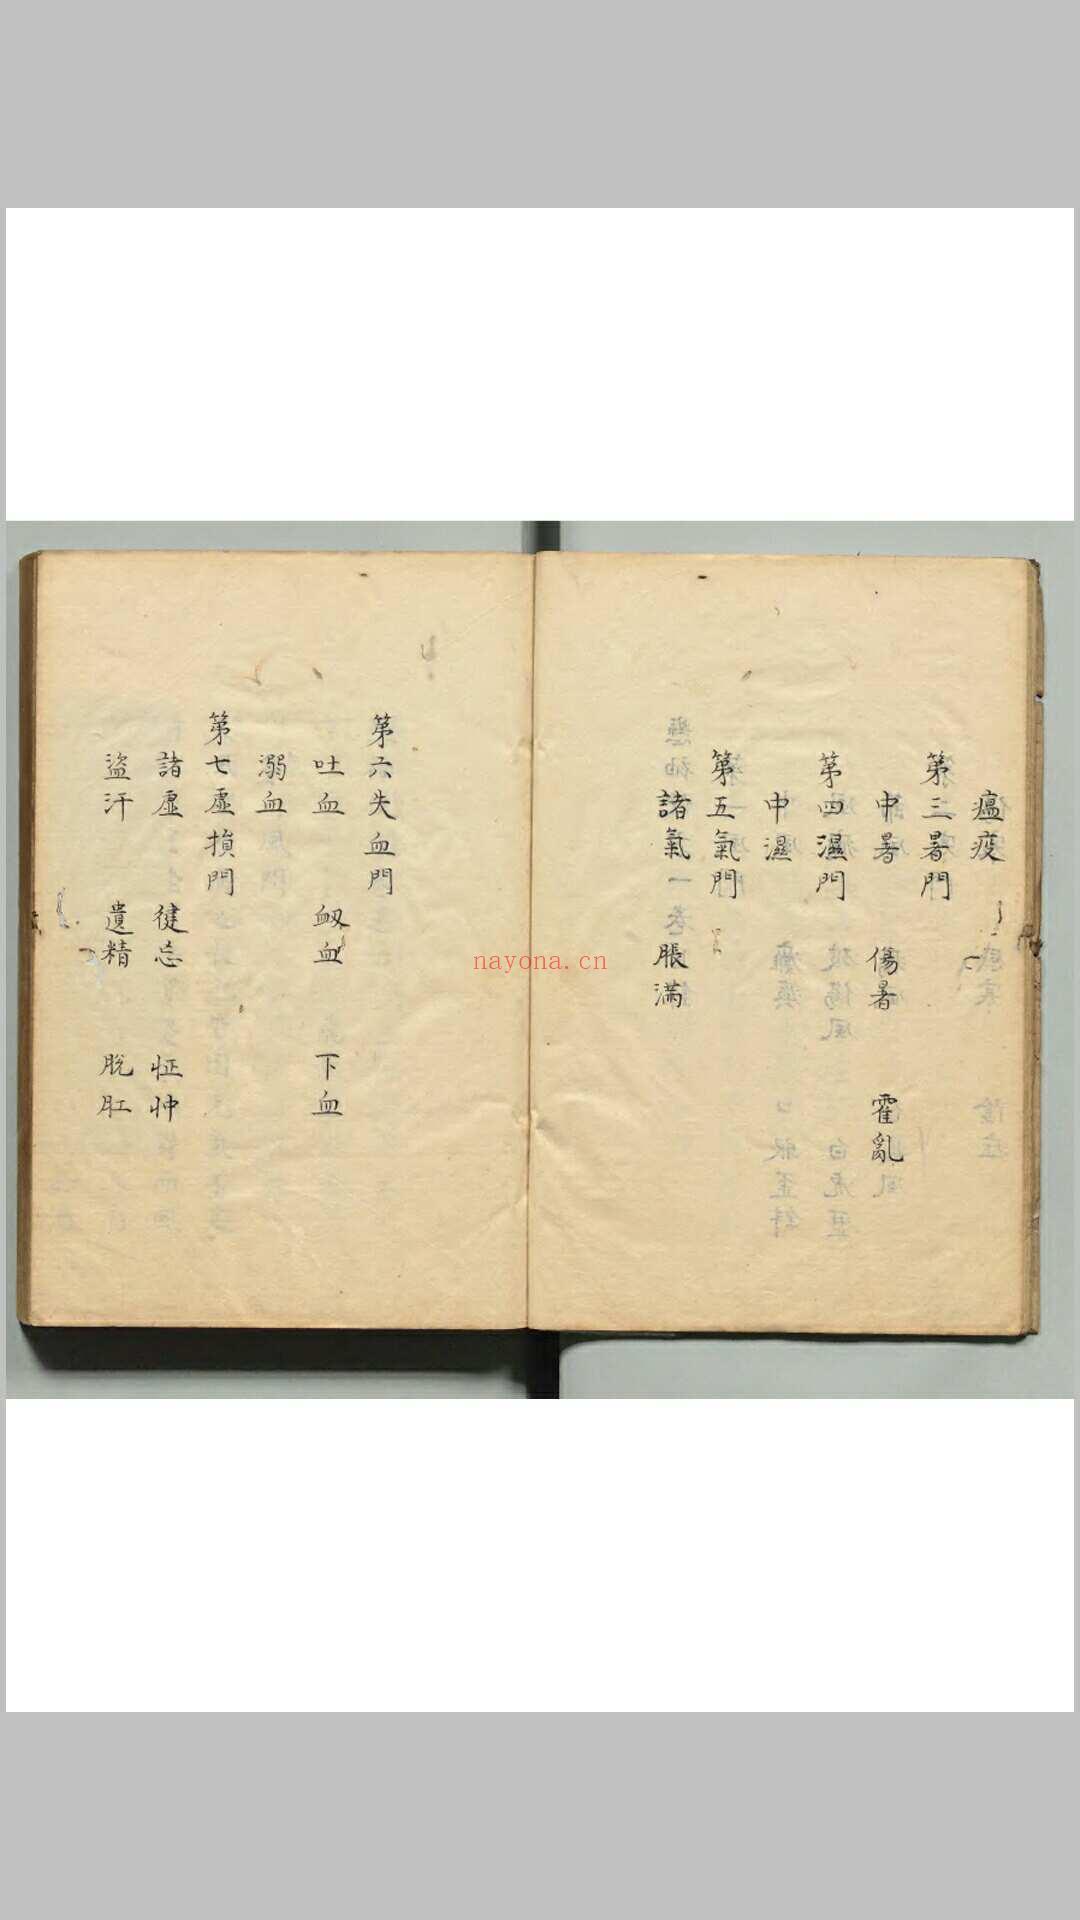 瘟疫
第三暑門
中暑 傷暑 霍亂
第四濕門
中濕
第五氣門
諸氣 脹滿
第六失血門
吐血 衂血 下血
溺血
第七虛損門
諸虛 健忘 怔忡
盜汗 遺精 脫肛
nayona.cn